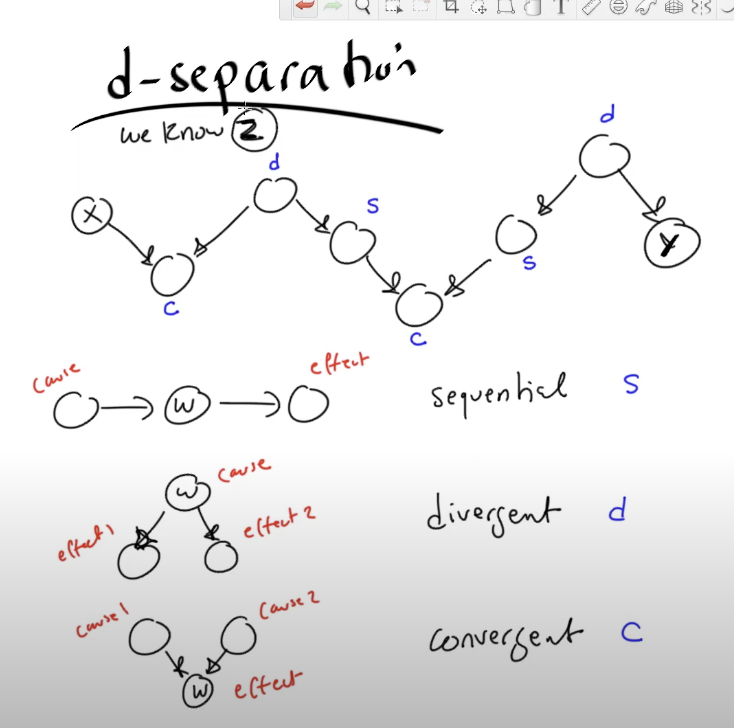 d-separation
we know Z
d
d
X
S
S
Y
C
C
cause
effect
W
sequential S
W
cause
effect1
effect 2
divergent d
cause1
cause 2
convergent C
W
effect